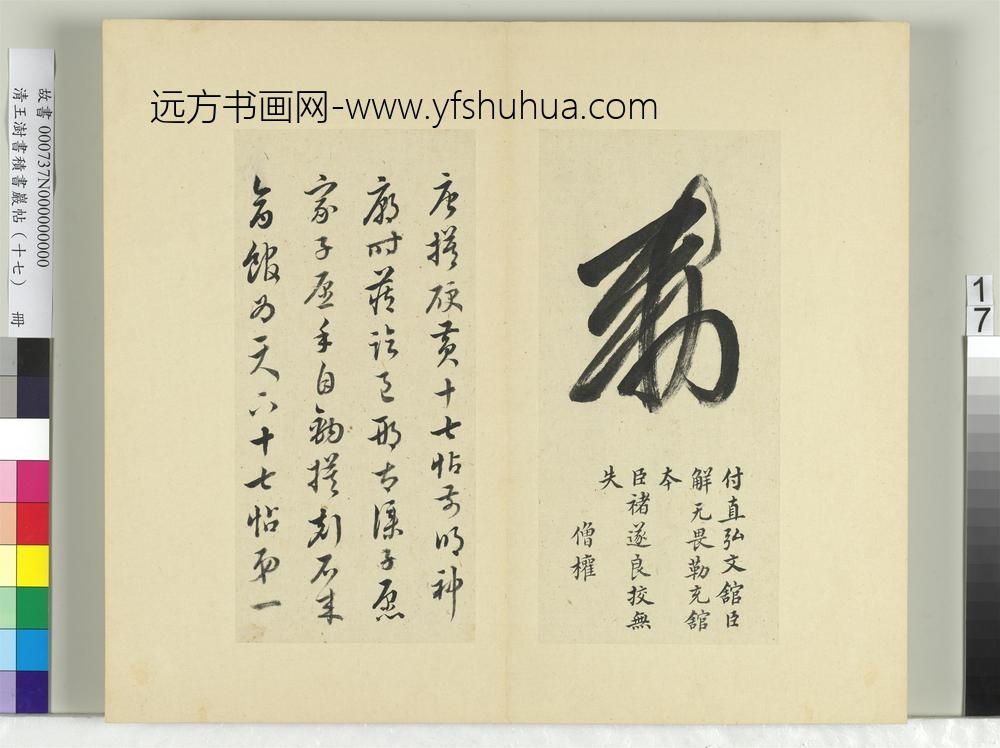 远方书画网-www.yfshuhua.com
故書 000737N000000000
清王澍書積書巖帖(十七) 冊
17
敕
付直弘文舘臣
解无畏勒充舘
本
臣褚遂良挍無
失
僧權
唐摸硬黄十七帖前明神
廟時藏臨邑邢太僕子愿
家子愿手自鉤摸刻石来
禽館为天下十七帖第一